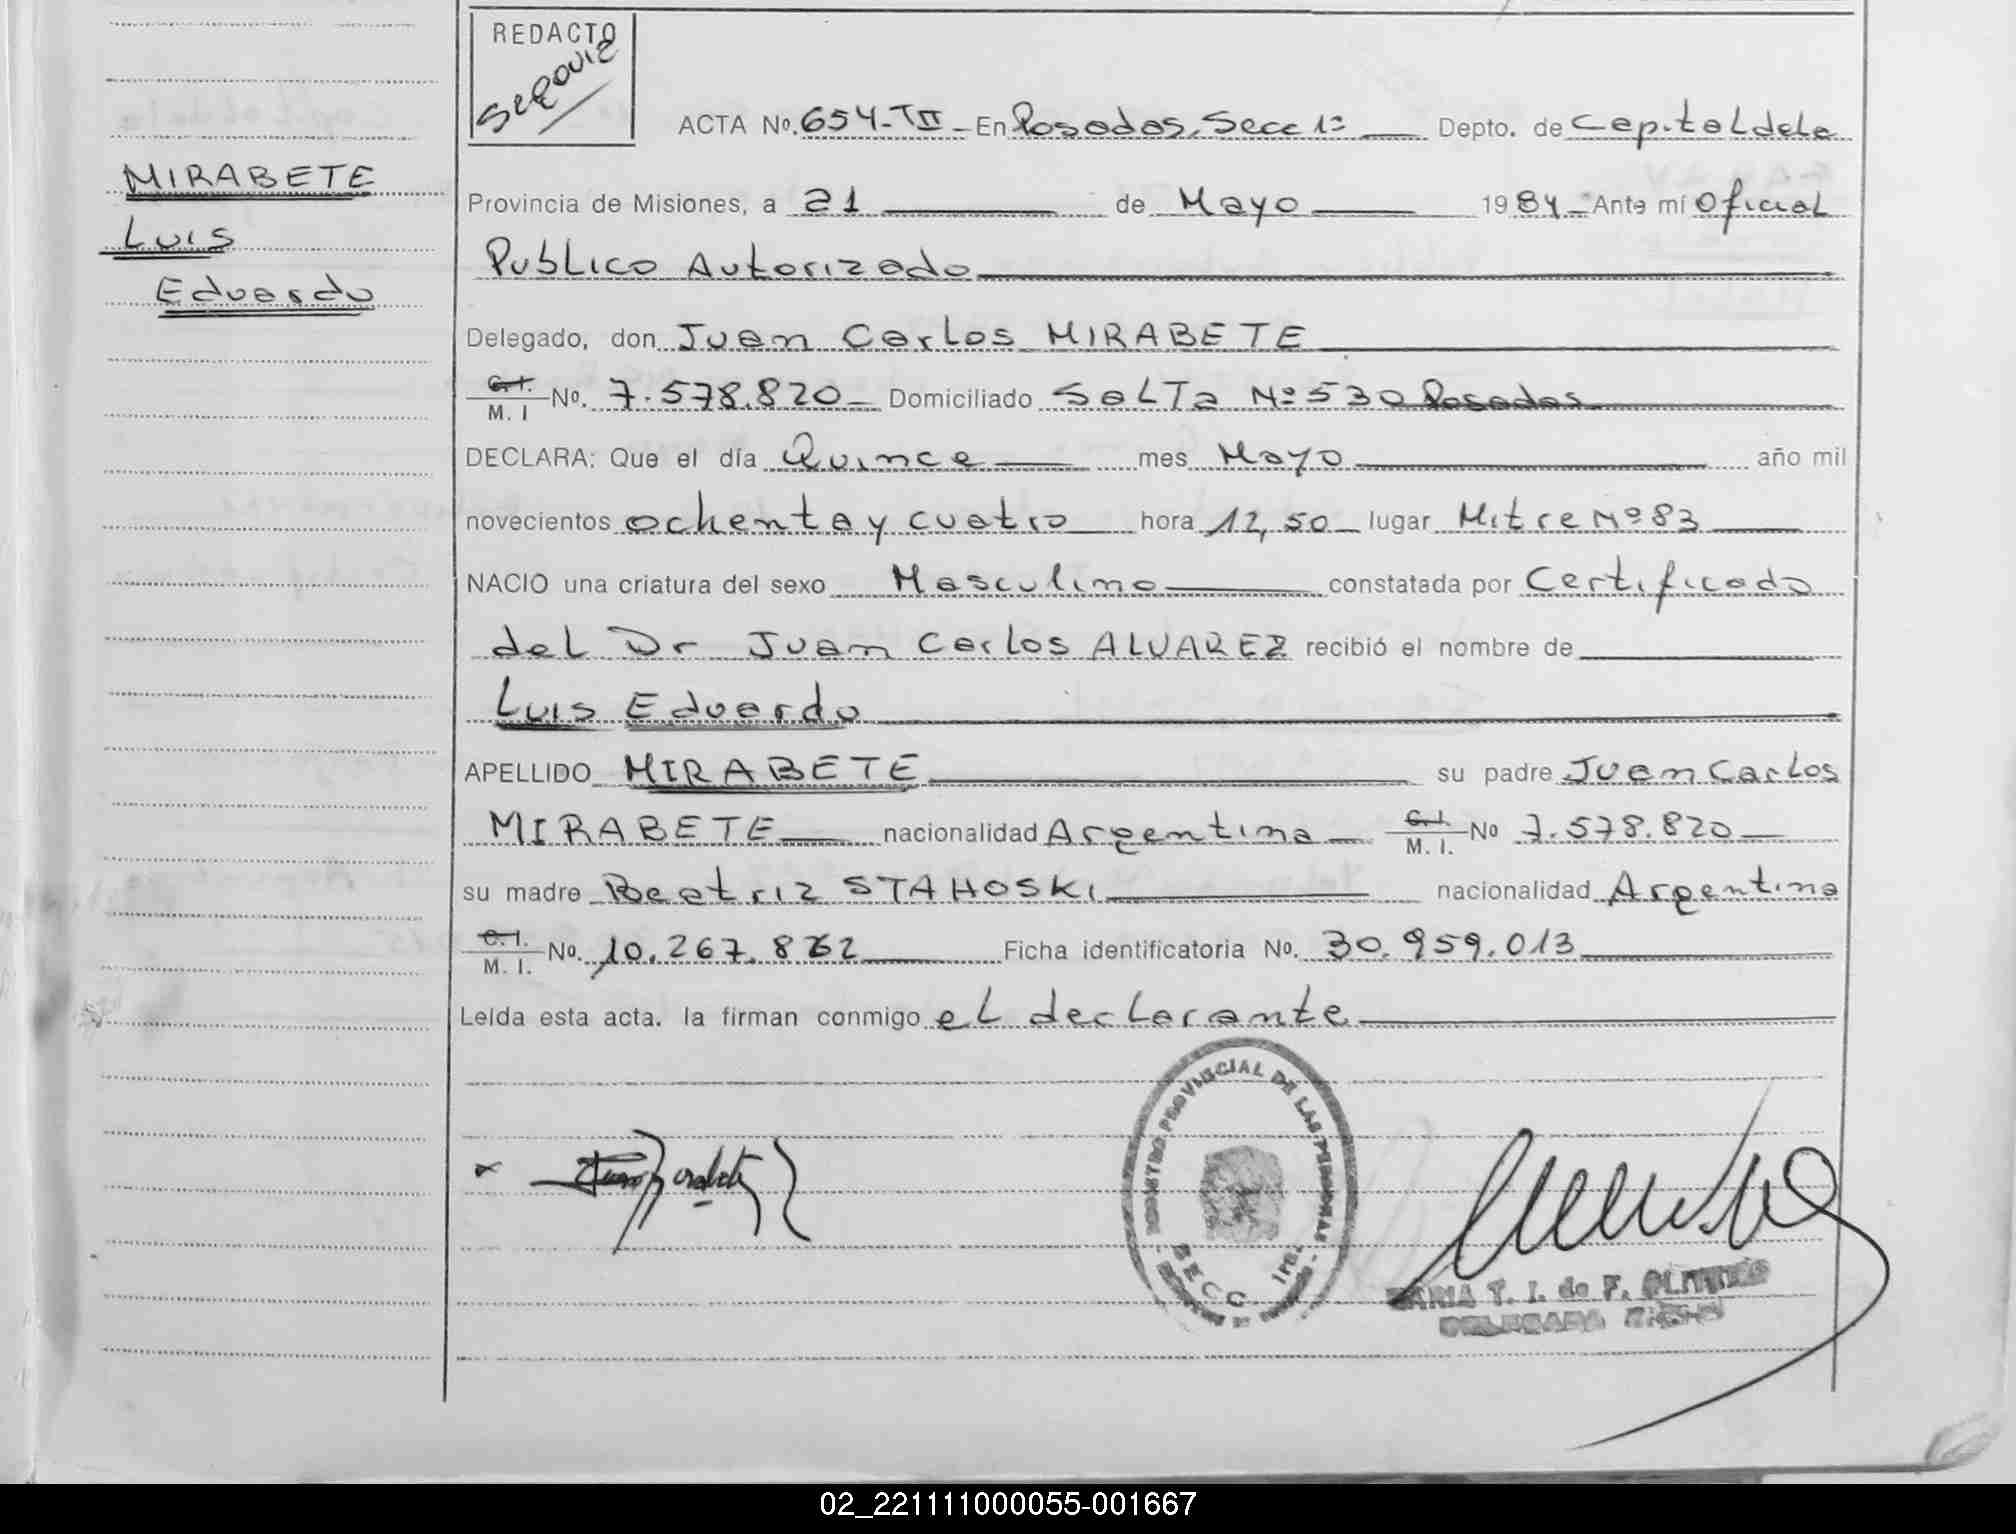 REDACTO
Segovia
ACTA No. 654-TII - En Posadas, Secc 1ª Depto. de Capital de la
MIRABETE
Luis
Eduardo
Provincia de Misiones, a 21 de Mayo 1984 - Ante mí Oficial
Publico Autorizado
Delegado, don Juan Carlos MIRABETE
C.I. M. I No. 7.578.820 - Domiciliado Salta Nº 530 Posadas
DECLARA: Que el día Quince mes Mayo año mil
novecientos ochenta y cuatro hora 12,50 - lugar Mitre Nº 83
NACIO una criatura del sexo Masculino constatada por Certificado
del Dr Juan Carlos ALVAREZ recibió el nombre de
Luis Eduardo
APELLIDO MIRABETE su padre Juan Carlos
MIRABETE nacionalidad Argentina C.I. M. I. No 7.578.820
su madre Beatriz STAHOSKI nacionalidad Argentina
C.I. M. I. No. 10.267.862 Ficha identificatoria No. 30.959.013
Leída esta acta. la firman conmigo el declarante
REGISTRO PROVINCIAL DE LAS PERSONAS
SECC. 1ra.
MARIA T. I. de F.
DELEGADA
02_221111000055-001667